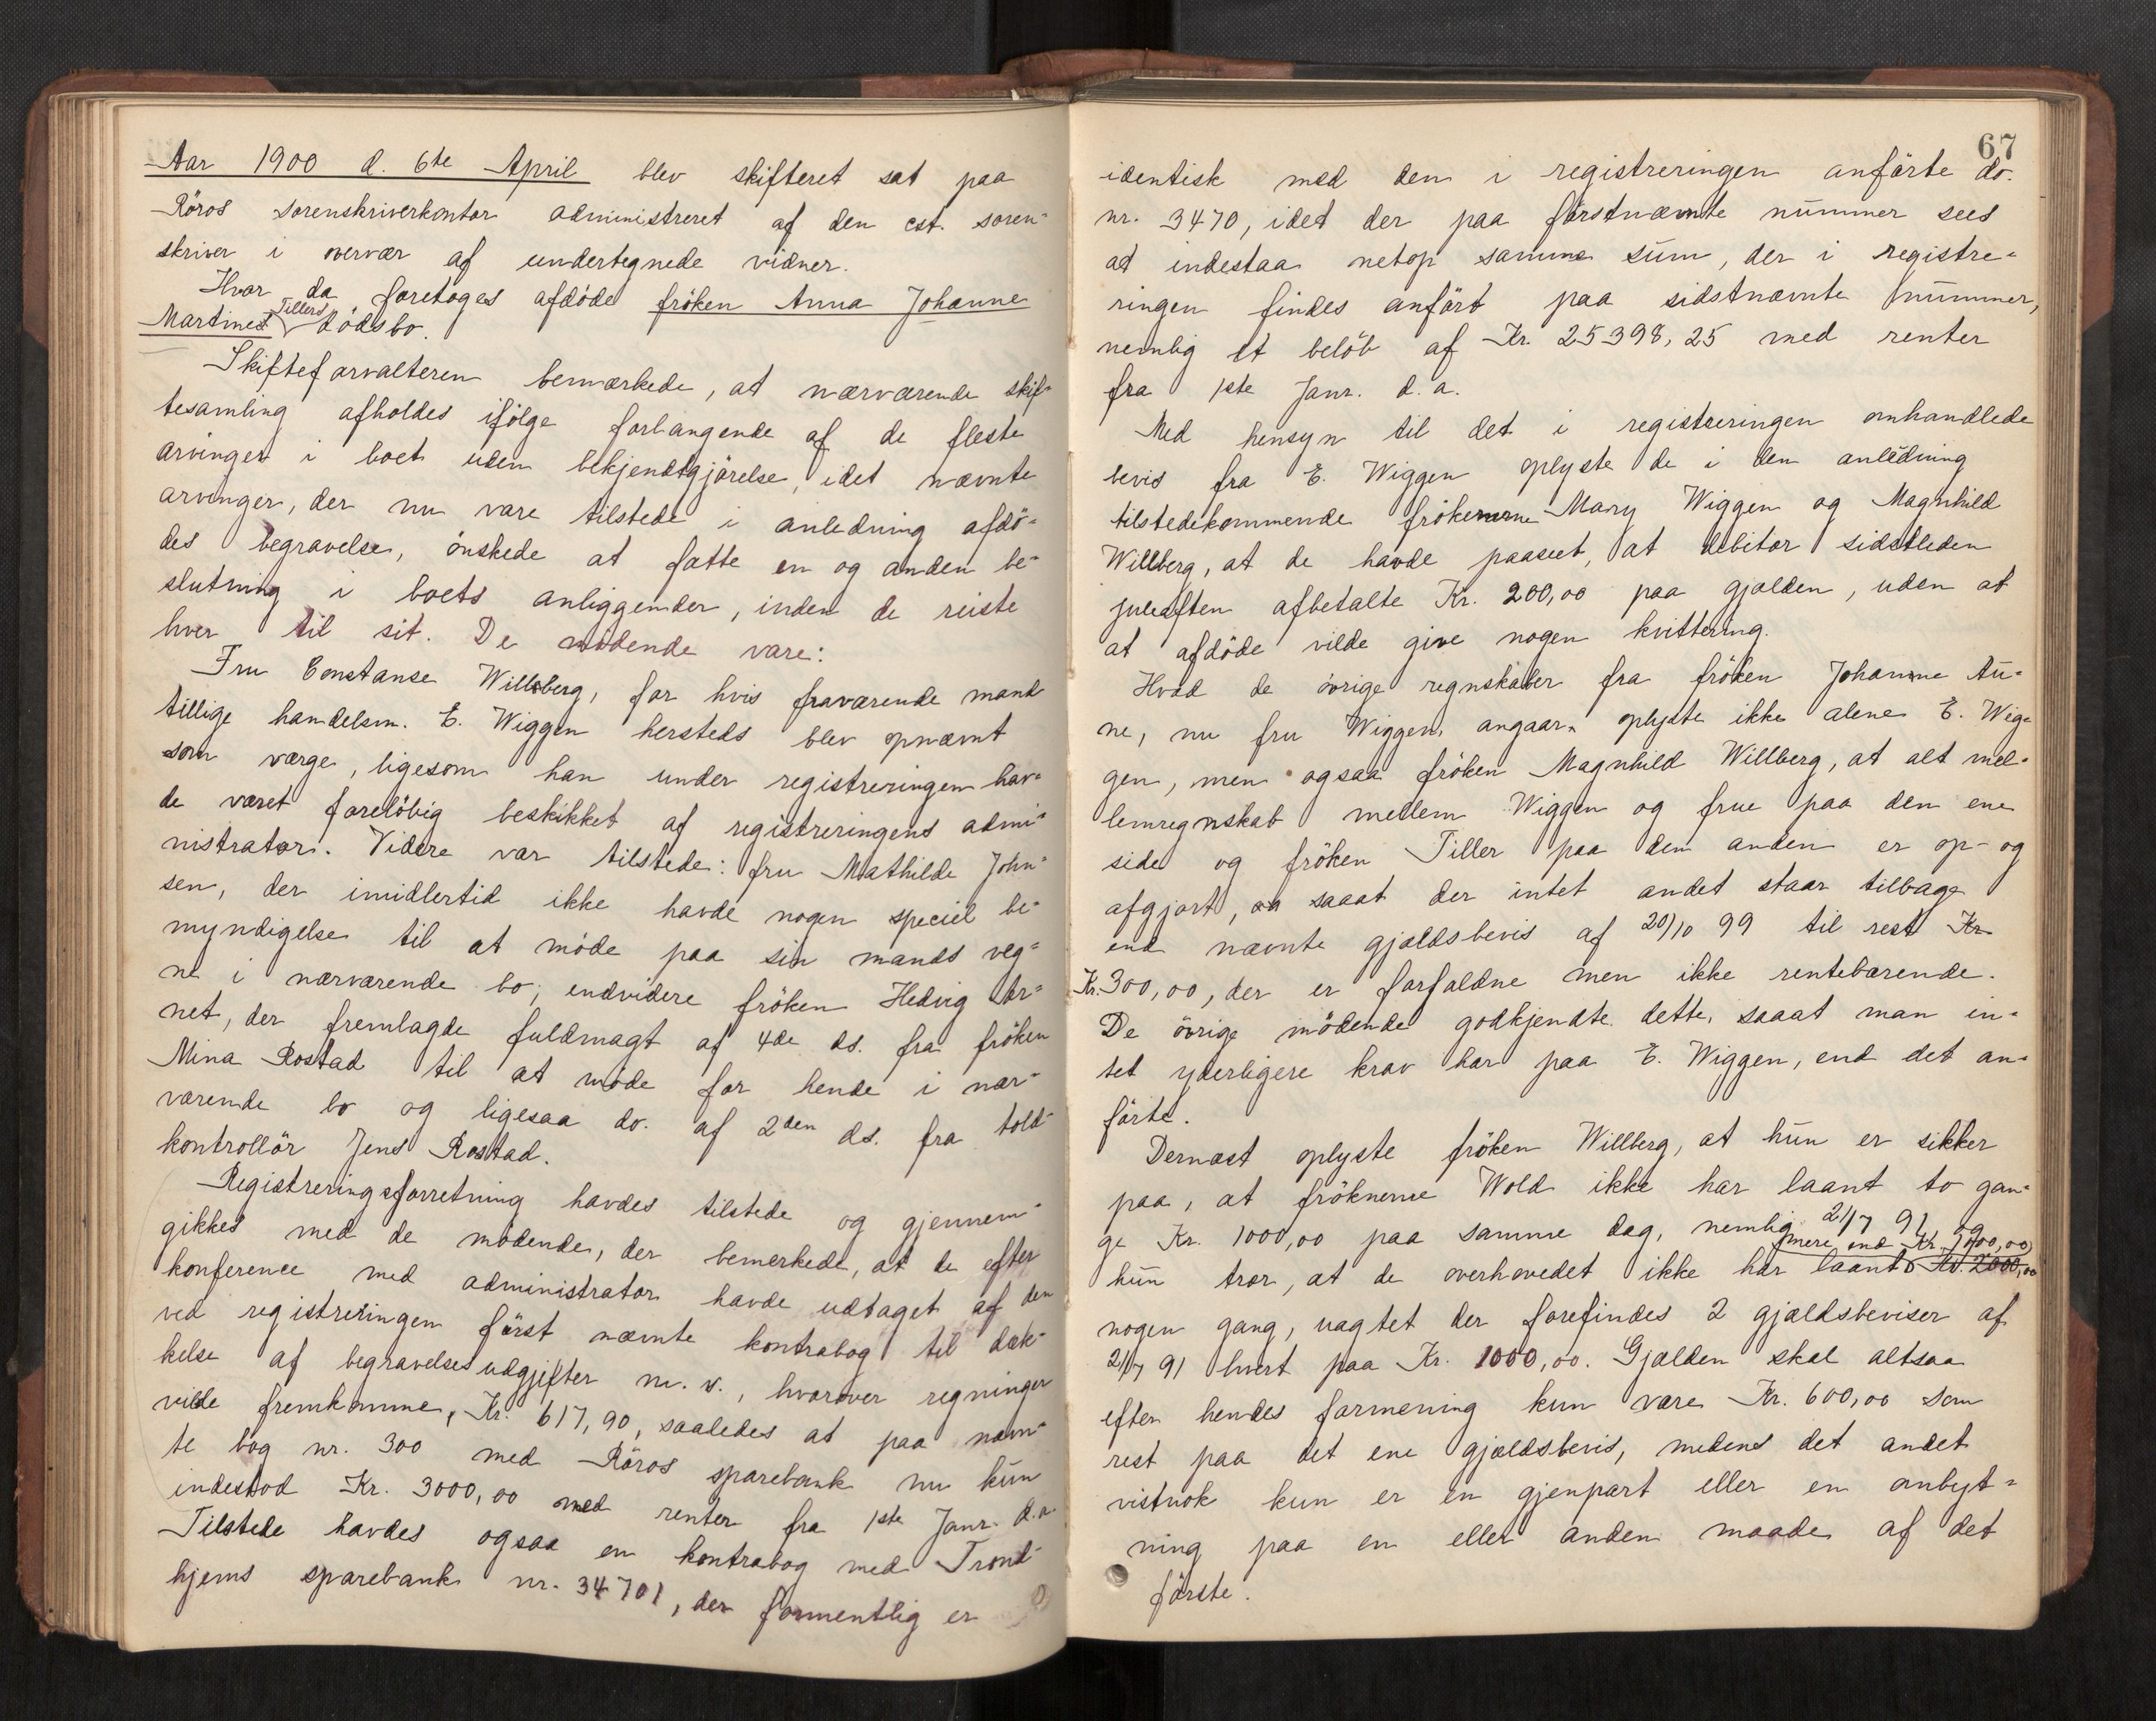 Aar 1900 d. 6te April blev skifteret sat paa
Röros sorenskriverkontor administreret af den cst. soren-
skriver i overvær af undertegnede vidner.
Hvor da foretoges afdöde fröken Anna Johanne
Martines Tillers dödsbo.
Skifteforvalteren bemærkede, at nærværende skif-
tesamling afholdes ifölge forlangende af de fleste
arvinger i boet uden bekjendtgjörelse, idet nævnte
arvinger, der nu vare tilstede i anledning afdö-
des begravelse, önskede at fatte en og anden be-
slutning i boets anliggender, inden de reiste
hver til sit. De mödende vare:
Fru Constanse Willberg, for hvis fraværende mand
tillige handelsm. E. Wiggen hersteds blev opnævnt
som værge, ligesom han under registreringen hav-
de været foreløbig beskikket af registreringens admi-
nistrator. Videre var tilstede: fru Mathilde John-
sen, der imidlertid ikke havde nogen speciel be-
myndigelse til at möde paa sin mands veg-
ne i nærværende bo; endvidere fröken Hedvig Ar-
net, der fremlagde fuldmagt af 4de ds. fra fröken
Mina Rostad til at möde for hende i nær-
værende bo og ligesaa do. af 2den ds. fra told-
kontrollör Jens Rostad.
Registreringsforretning havdes tilstede og gjennem-
gikkes med de mödende, der bemerkede, at de efter
konference med administrator havde udtaget af den
ved registreringen först nævnte kontrabog til dæk-
kelse af begravelsesudgifter m. v., hvorover regninger
vilde fremkomme, Kr. 617,90, saaledes at paa nævn-
te bog nr. 300 med Röros sparebank nu kun
indestod Kr. 3000,00 med renter fra 1ste Janr. d.a.
Tilstede havdes ogsaa en kontrabog med Trond-
hjems sparebank nr. 34701, der formentlig er
67
identisk med den i registreringen anförte do.
nr. 3470, idet der paa förstnævnte nummer sees
at indestaa netop samme sum, der i registre-
ringen findes anfört paa sidstnævnte nummer,
nemlig et belöb af Kr. 25398,25 med renter
fra 1ste Janr. d. a.
Med hensyn til det i registreringen omhandlede
bevis fra E. Wiggen oplyste de i den anledning
tilstedekommende frökenerne Mary Wiggen og Magnhild
Willberg, at de havde paaseet, at debitor sidstleden
juleaften afbetalte Kr. 200,00 paa gjælden, uden at
at afdöde vilde give nogen kvittering.
Hvad de övrige regnskaber fra fröken Johanne Au-
ne, nu fru Wiggen, angaar, oplyste ikke alene E. Wig-
gen, men ogsaa fröken Magnhild Willberg, at alt mel-
lemregnskab mellem Wiggen og frue paa den ene
side og fröken Tiller paa den anden er op- og
afgjort, saaat der intet andet staar tilbage
end nævnte gjældsbevis af 20/10 99 til rest Kr.
Kr. 300,00, der er forfaldne men ikke rentebærende.
De övrige mödende godkjendte dette, saaat man in-
tet yderligere krav har paa E. Wiggen, end det an-
förte.
Dernæst oplyste fröken Willberg, at hun er sikker
paa, at fröknerne Wold ikke har laant to gan-
ge Kr. 1000,00 paa samme dag, nemlig 21/7 91, og
mere end Kr. 1000,00
hun tror, at de overhovedet ikke har laant Kr. 2000,00
nogen gang, uagtet der forefindes 2 gjældsbeviser af
21/7 91 hvert paa Kr. 1000,00. Gjælden skal altsaa
efter hendes formening kun være Kr. 600,00 som
rest paa det ene gjældsbevis, medens det andet
vistnok kun er en gjenpart eller en ombyt-
ning paa en eller anden maade af det
förste.